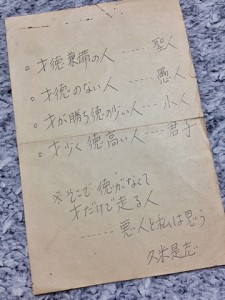 ○ 才徳兼備の人 ‥‥‥ 聖人
○ 才徳のない人 ‥‥‥ 愚人
○ 才が勝り徳の少い人 ‥‥ 小人
○ 才少く徳高い人 ‥‥ 君子
※ そこで 徳がなくて
才だけで走る人
‥‥‥ 悪人と私は思う
久米是志